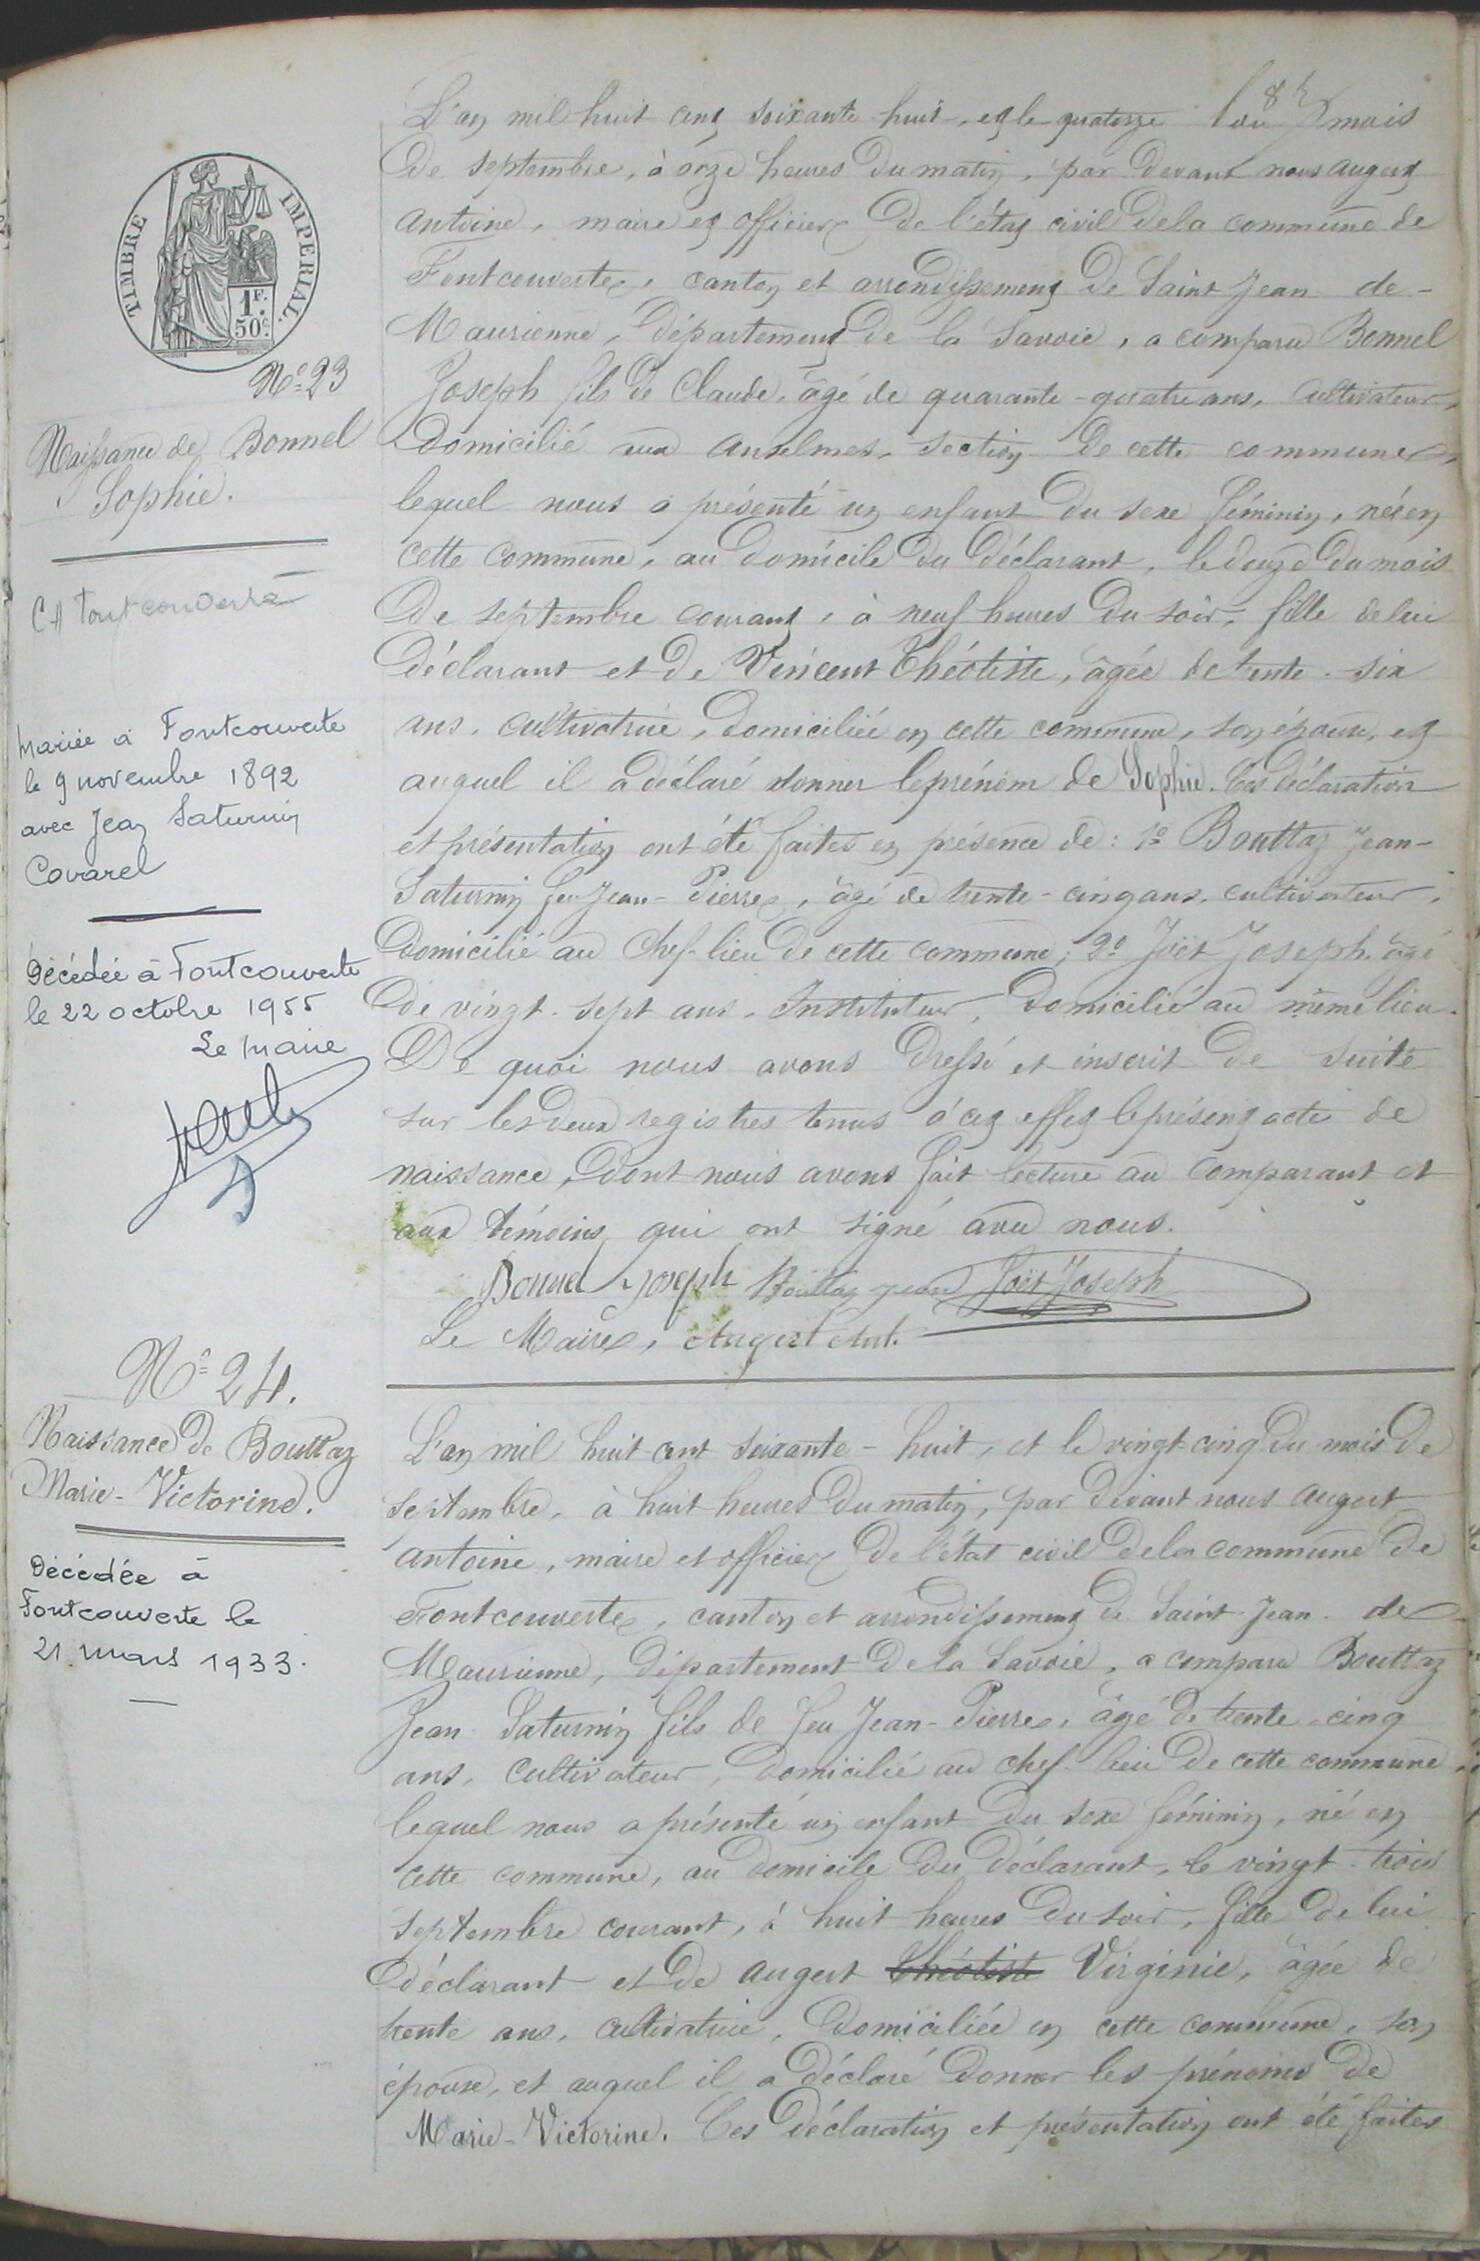 TIMBRE IMPERIAL.
1F.
50c.
No 23
Naissance de Bonnel
Sophie.
Mariée à Fontcouverte
le 9 novembre 1892
avec Jean Saturnin
Covarel
Décédée à Fontcouverte
le 22 octobre 1955
Le Maire
L'an mil huit cent soixante huit, et le quatorze du mois
de septembre, à onze heures du matin, par devant nous Augert
Antoine, maire et officier de l'état civil de la commune de
Fontcouverte, canton et arrondissement de Saint Jean de-
Maurienne, département de la Savoie, a comparu Bonnel
Joseph fils de Claude, âgé de quarante-quatre ans, cultivateur,
domicilié aux Anselmes, section de cette commune,
lequel nous a présenté un enfant du sexe féminin, né en
cette commune, au domicile du déclarant, le douze du mois
de septembre courant, à neuf heures du soir, fille de lui
déclarant et de Vincent Théotiste, âgée de trente-six
ans, cultivatrice, domiciliée en cette commune, son épouse, et
auquel il a déclaré donner le prénom de Sophie. Ces déclaration
et présentation ont été faites en présence de: 1o Bouttaz Jean-
Saturnin feu Jean-Pierre, âgé de trente-cinq ans, cultivateur,
domicilié au chef-lieu de cette commune; 2o Joët Joseph, âgé
de vingt-sept ans, Instituteur, domicilié au même lieu.
De quoi nous avons dressé et inscrit de suite
sur les deux registres tenus à cet effet le présent acte de
naissance, dont nous avons fait lecture au comparant et
aux témoins, qui ont signé avec nous.
Bonnel Joseph Bouttaz Jean Joët Joseph
Le Maire, Augert Ant.
No 24.
Naissance de Bouttaz
Marie-Victorine.
Décédée à
Fontcouverte le
21 mars 1933.
L'an mil huit cent soixante-huit, et le vingt-cinq du mois de
septembre, à huit heures du matin, par devant nous Augert
Antoine, maire et officier de l'état civil de la commune de
Fontcouverte, canton et arrondissement de Saint-Jean-de-
Maurienne, département de la Savoie, a comparu Bouttaz
Jean Saturnin fils de feu Jean-Pierre, âgé de trente-cinq
ans, cultivateur, domicilié au chef-lieu de cette commune,
lequel nous a présenté un enfant du sexe féminin, né en
cette commune, au domicile du déclarant, le vingt-trois
septembre courant, à huit heures du soir, fille de lui
déclarant et de Augert Théotiste Virginie, âgée de
trente ans, cultivatrice, domiciliée en cette commune, son
épouse, et auquel il a déclaré donner les prénoms de
Marie-Victorine. Ces déclaration et présentation ont été faites